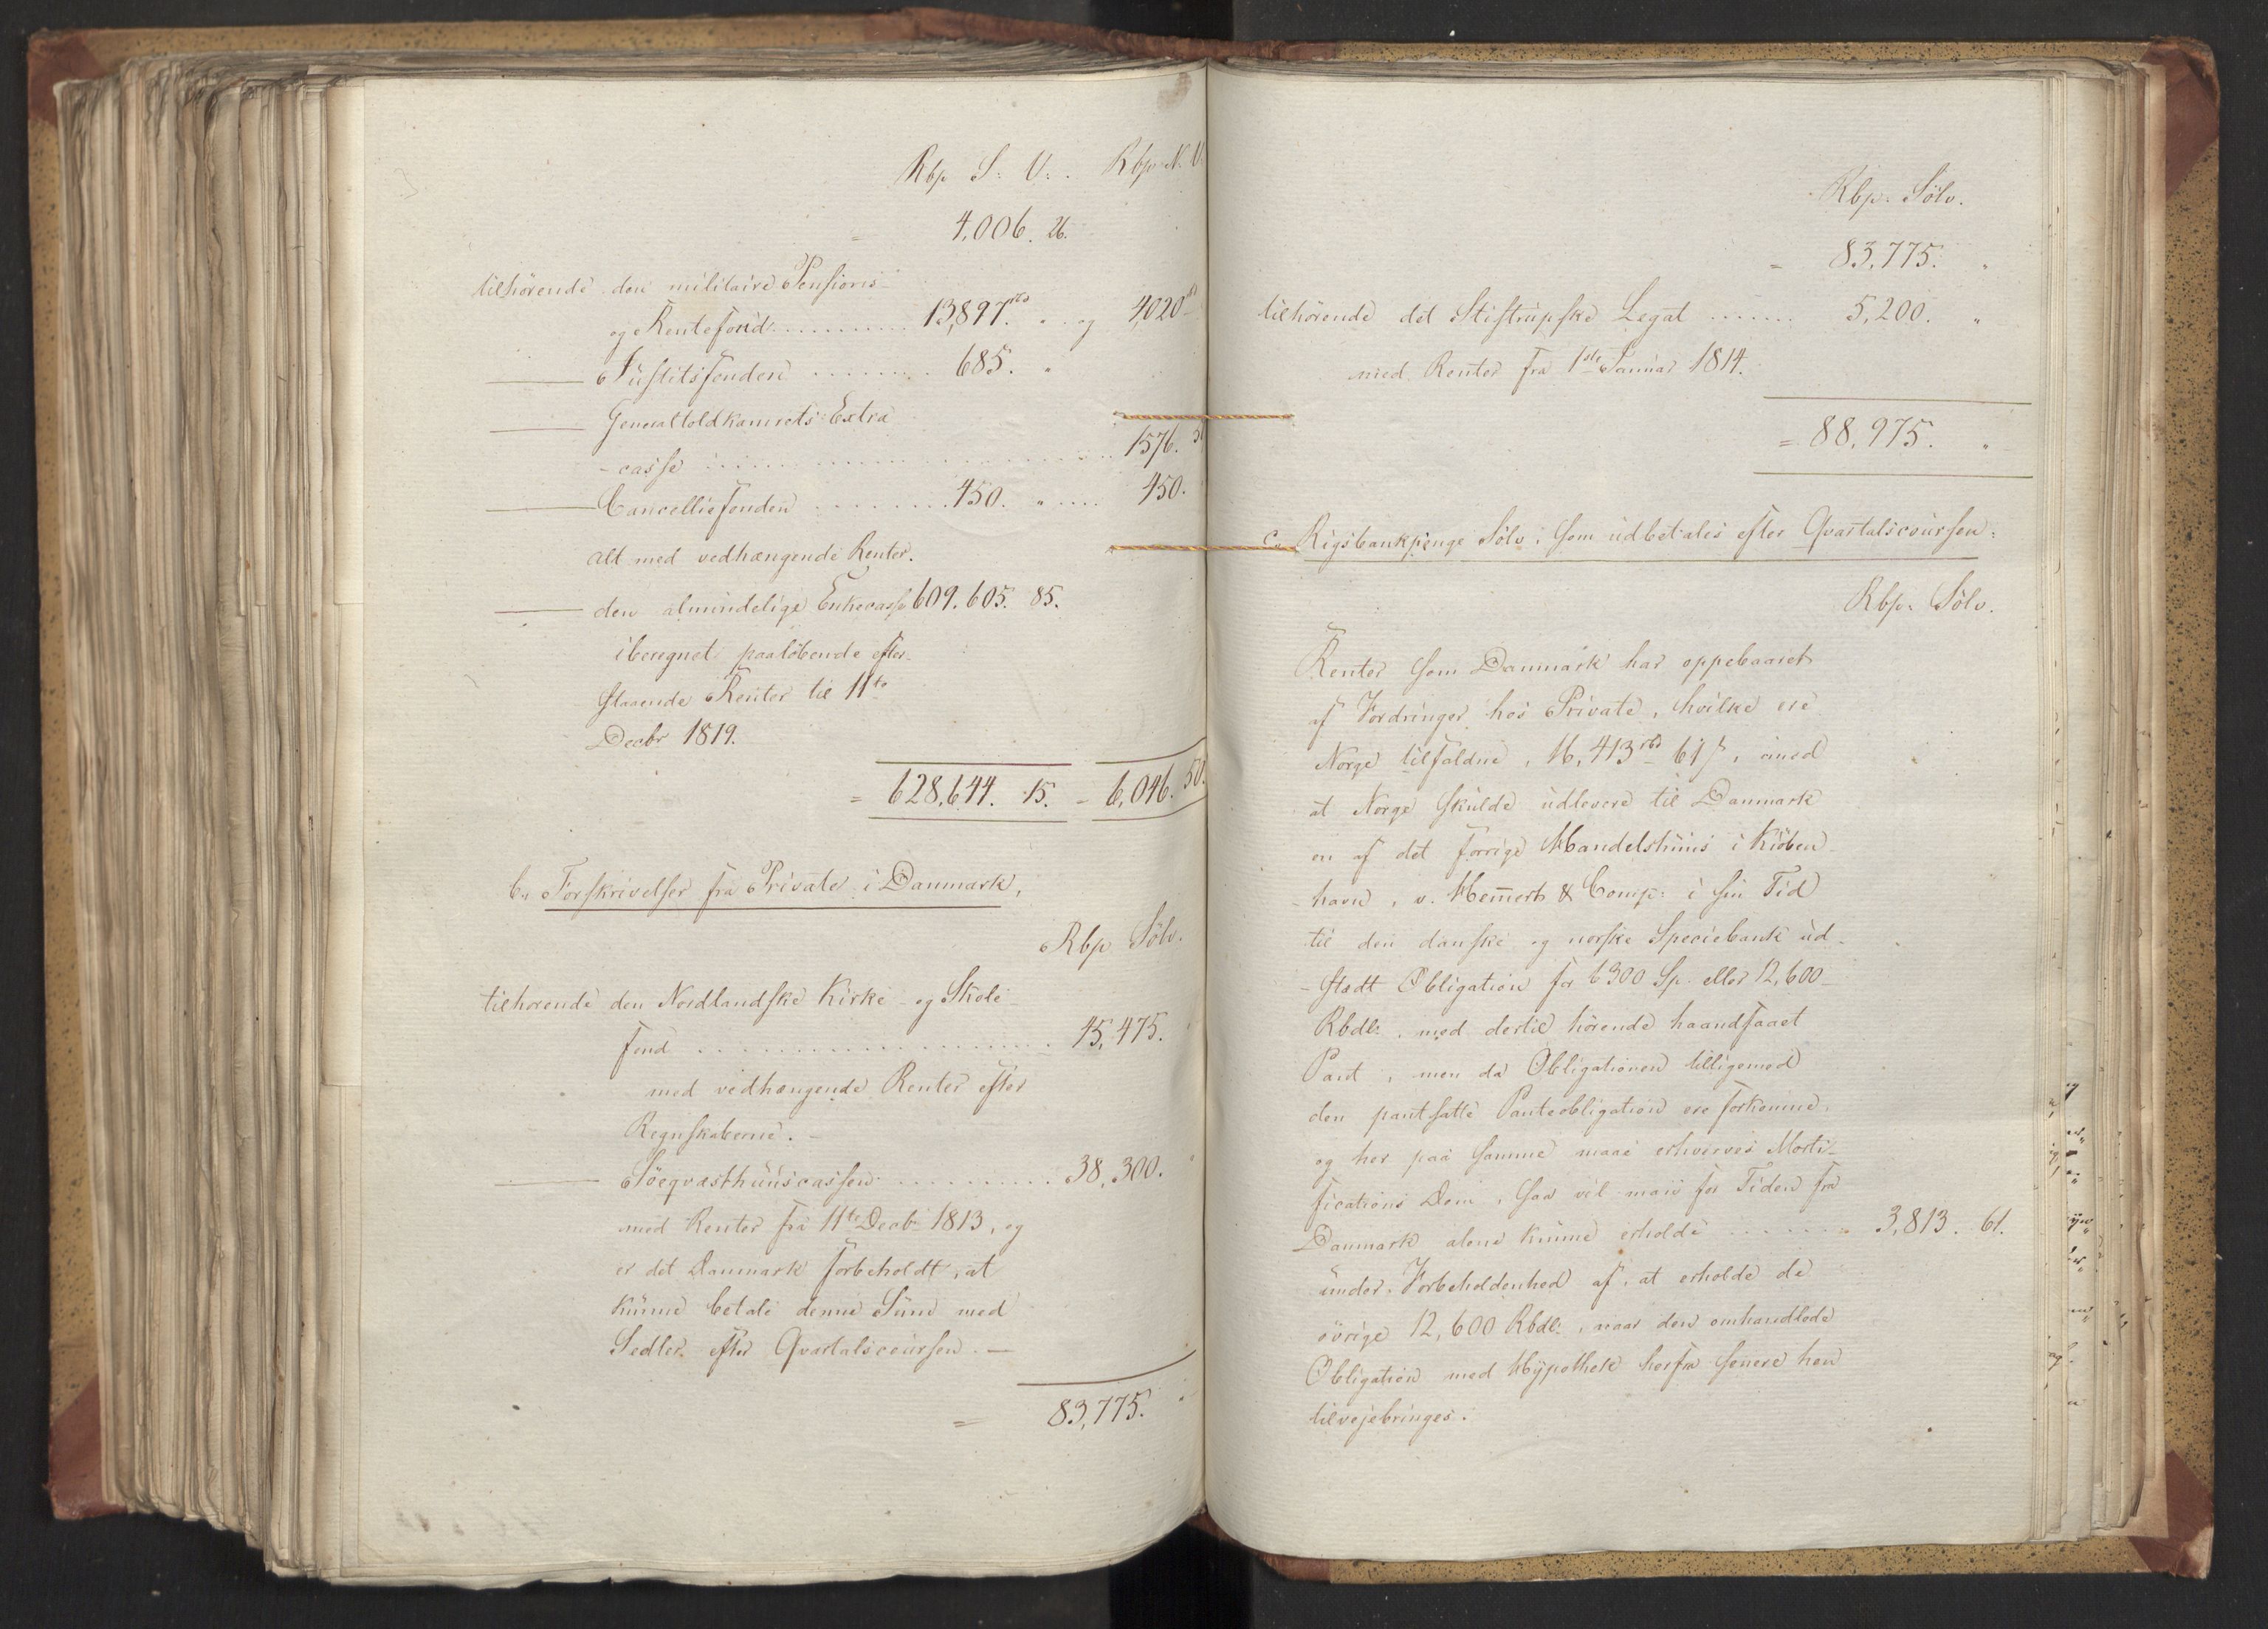 Rbp S: V: . Rbp N. V.
= 4,006. 26.
tilhörende den militaire Pensions-
og Rentefond .......... 13,897 rbd . . og 4,020
——— Justitsfonden ........ 685. "
——— Generaltoldkamrets Extra
- casse .......... 1576.
——— Cancelliefonden ......... 450. " .... 450.
alt med vedhængende Renter.
——— den almindelige Enkecasse 609.605. 85.
iberegnet paalöbende efter-
staaende Renter til 11te
Decbr 1819.
= 628,644. 15. = 6,046. 50.
b., Forskrivelser fra Private i Danmark,
Rbp Sölv.
tilhörende den Nordlandske Kirke- og Skole-
fond .................. 45,475.
med vedhængende Renter efter
Regnskaberne. —
——— Söeqvæsthuuscassen .......... 38,300.
med Renter fra 11te Decb 1813, og
er det Danmark forbeholdt, at
kunne betale denne Sum med
Sedler efter Qvartalscoursen. —
= 83,775.
Rbp. Sölv.
= 83,775. "
tilhörende det Stistrupske Legat ....... 5,200. "
med Renter fra 1ste Januar 1814.
= 88,975. "
c., Rigsbankpenge Sölv, som udbetales efter Qvartalscoursen:
Rbp. Sölv.
Renter som Danmark har oppebaaret
af Fordringer hos Private, hvilke ere
Norge tilfaldne, 16,413 rbd 61 s, imod
at Norge skulde udlevere til Danmark
en af det forrige Handelshuus i Kiöben-
- havn, v. Hemert & Comp: i sin Tid
til den danske og norske Speciebank ud-
- stædt Obligation for 6300 Sp. eller 12,600
Rbdl:, med dertil hörende haandfaaet
Pant, men da Obligationen tilligemed
den pantsatte Panteobligation ere forkomne,
og her paa samme maae erhverves Morti-
fications Dom, saa vil man for Tiden fra
Danmark alene kunne erholde ....... 3,813. 61.
under Forbeholdenhed af, at erholde de
övrige 12,600 Rbdl:, naar den omhandlede
Obligation med Hypothek herfra senere hen
tilvejebringes.